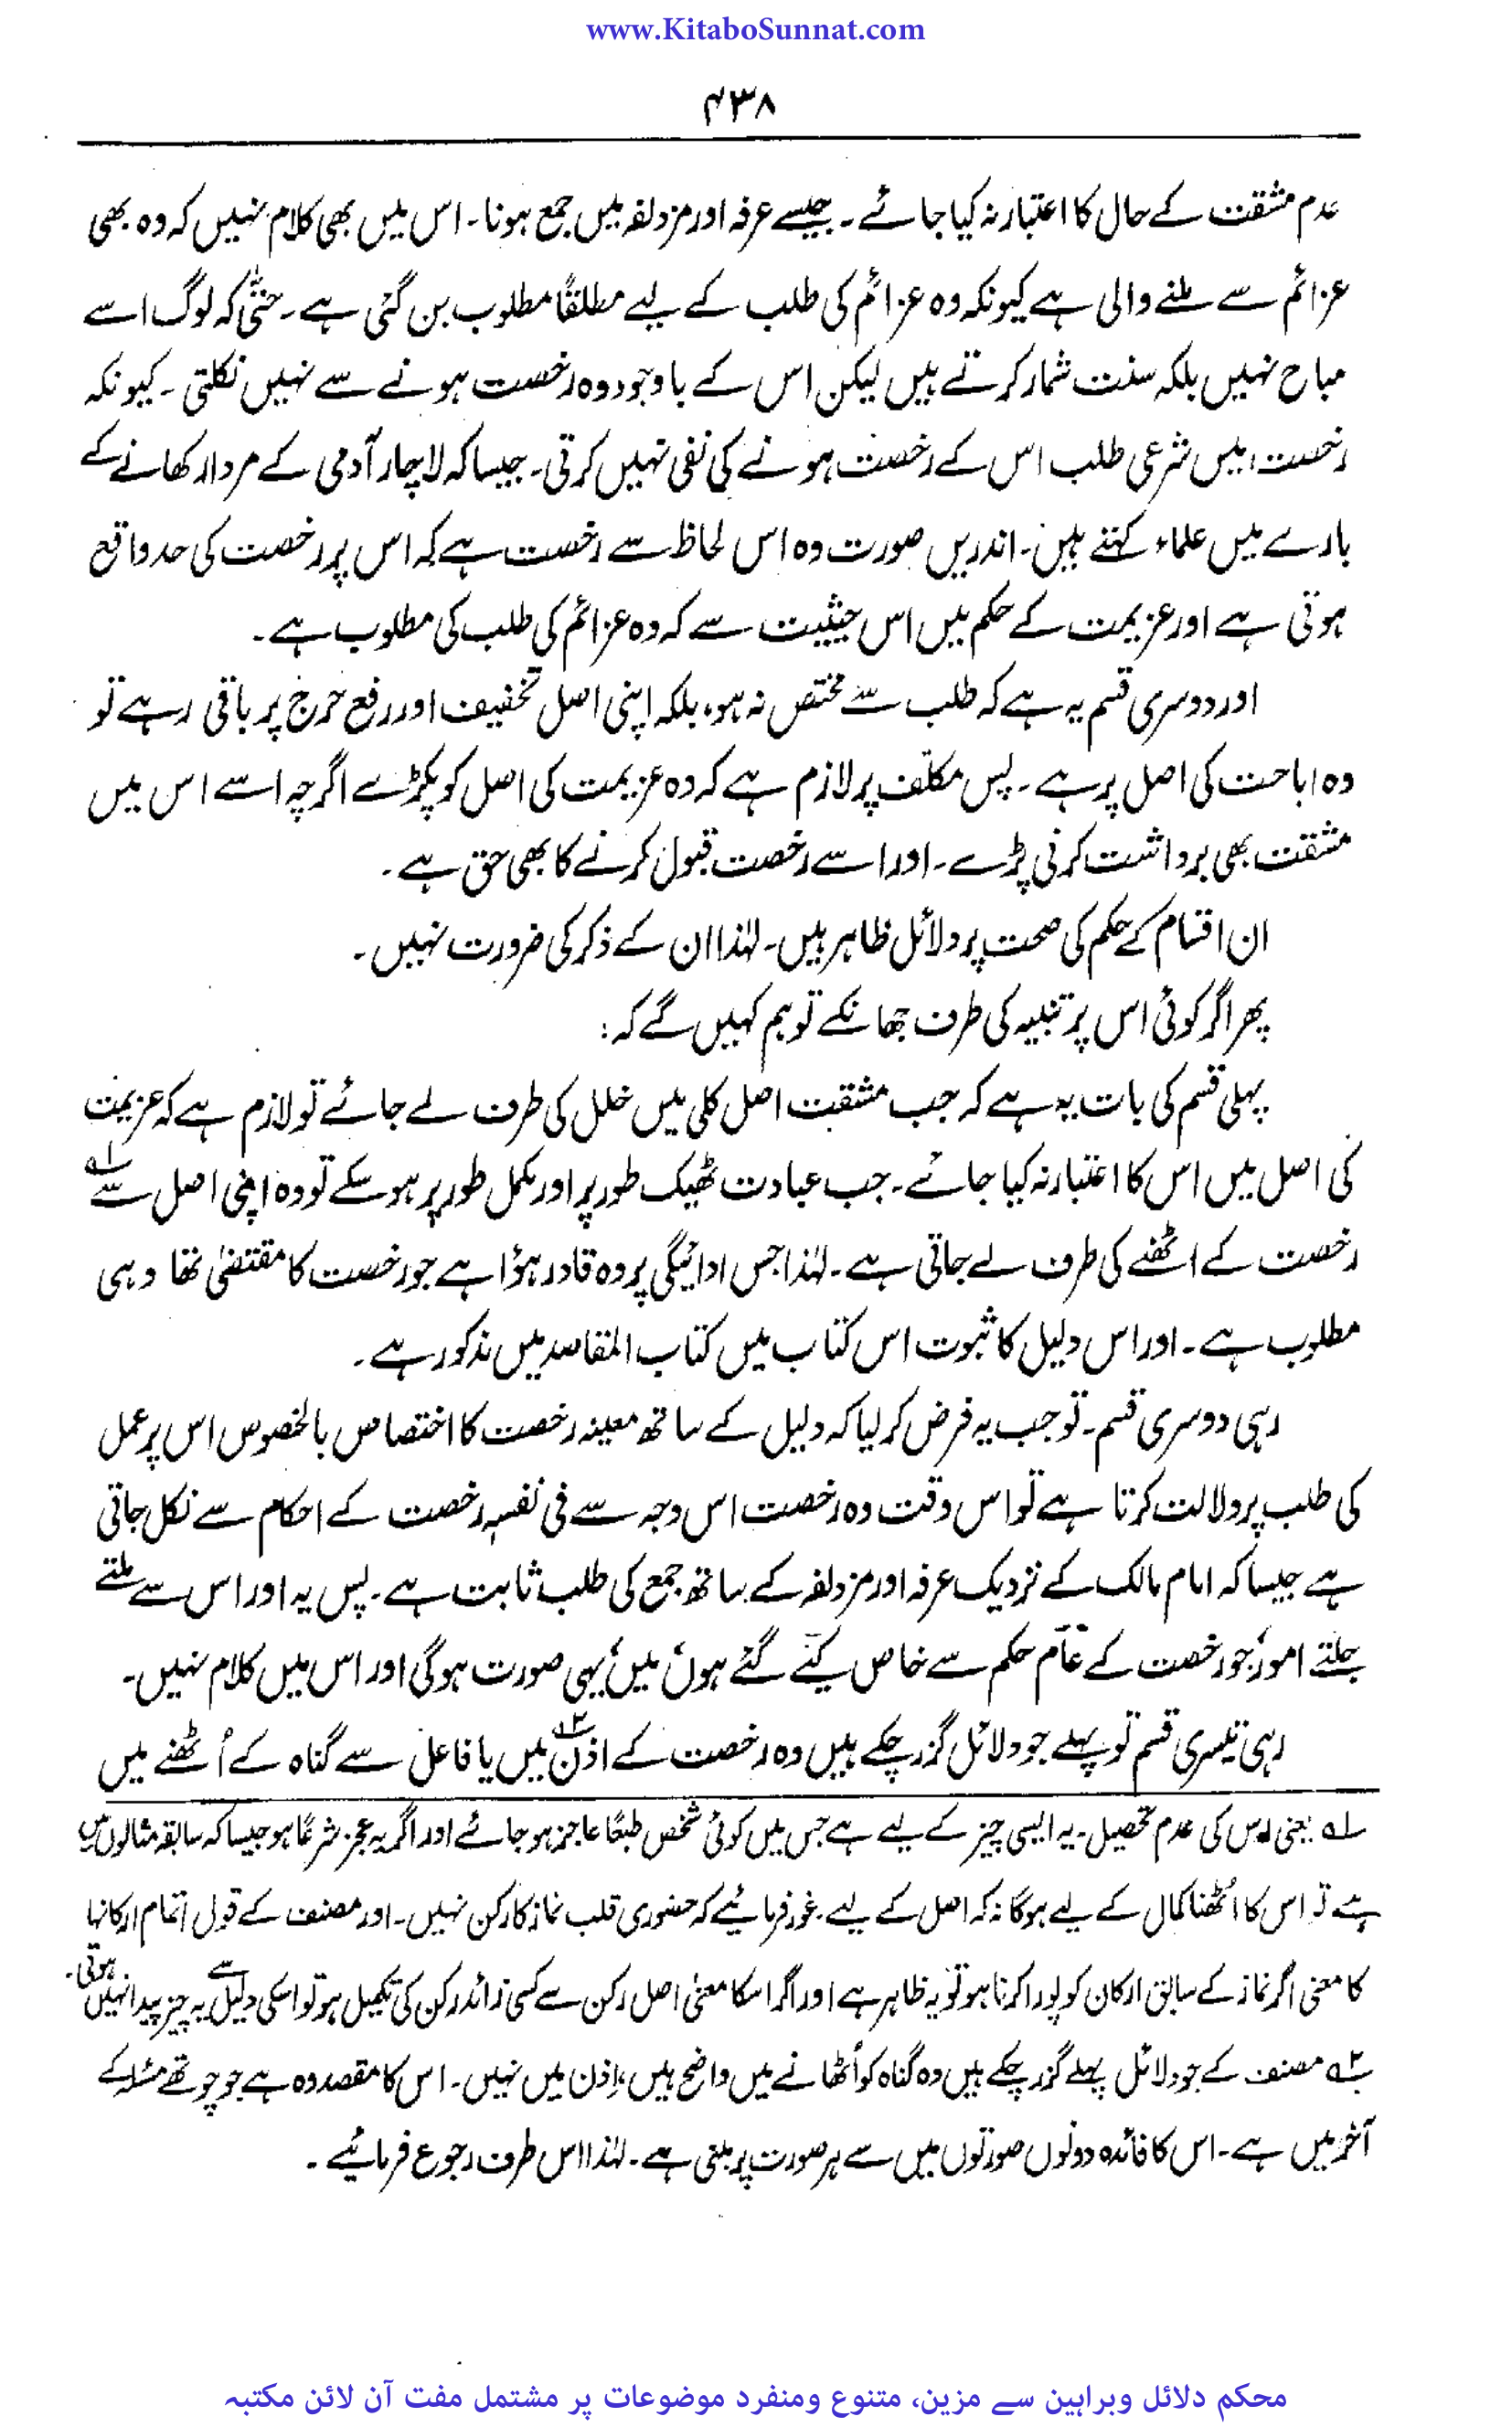 www.KitaboSunnat.com
۴۳۸
عدم مشقت کے حال کا اعتبار نہ کیا جائے۔ جیسے عرفہ اور مزدلفہ میں جمع ہونا۔ اس میں بھی کلام نہیں کہ وہ بھی
عزائم سے ملنے والی ہے کیونکہ وہ عزائم کی طلب کے لیے مطلقاً مطلوب بن گئی ہے۔ حتیّٰ کہ لوگ اسے
مباح نہیں بلکہ سنت شمار کرتے ہیں لیکن اس کے باوجود وہ رخصت ہونے سے نہیں نکلتی۔ کیونکہ
رخصت میں شرعی طلب اس کے رخصت ہونے کی نفی نہیں کرتی۔ جیسا کہ لاچار آدمی کے مردار کھانے کے
بارے میں علماء کہتے ہیں۔ اندریں صورت وہ اس لحاظ سے رخصت ہے کہ اس پر رخصت کی حد واقع
ہوتی ہے اور عزیمت کے حکم میں اس حیثیت سے کہ وہ عزائم کی طلب کی مطلوب ہے۔
اور دوسری قسم یہ ہے کہ طلب سے مختص نہ ہو، بلکہ اپنی اصل تخفیف اور رفع حرج پر باقی رہے تو
وہ اباحت کی اصل پر ہے۔ پس مکلّف پر لازم ہے کہ وہ عزیمت کی اصل کو پکڑے اگرچہ اسے اس میں
مشقت بھی برداشت کرنی پڑے۔ اور اسے رخصت قبول کرنے کا بھی حق ہے۔
ان اقسام کے حکم کی صحت پر دلائل ظاہر ہیں۔ لہٰذا ان کے ذکر کی ضرورت نہیں۔
پھر اگر کوئی اس پر تنبیہ کی طرف جھانکے تو ہم کہیں گے کہ:
پہلی قسم کی بات یہ ہے کہ جب مشقت اصل کلی میں خلل کی طرف لے جائے تو لازم ہے کہ عزیمت
کی اصل میں اس کا اعتبار نہ کیا جائے۔ جب عبادت ٹھیک طور پر اور مکمل طور پر ہو سکے تو وہ اپنی اصل سے ۱؎
رخصت کے اٹھنے کی طرف لے جاتی ہے۔ لہٰذا جس ادائیگی پر وہ قادر ہؤا ہے جو رخصت کا مقتضیٰ تھا وہی
مطلوب ہے۔ اور اس دلیل کا ثبوت اس کتاب میں کتاب المقاصد میں مذکور ہے۔
رہی دوسری قسم۔ تو جب یہ فرض کر لیا کہ دلیل کے ساتھ معینہ رخصت کا اختصاص بالخصوص اس پر عمل
کی طلب پر دلالت کرتا ہے تو اس وقت وہ رخصت اس وجہ سے فی نفسہٖ رخصت کے احکام سے نکل جاتی
ہے جیسا کہ امام مالک کے نزدیک عرفہ اور مزدلفہ کے ساتھ جمع کی طلب ثابت ہے۔ پس یہ اور اس سے ملتے
جلتے امور جو رخصت کے عام حکم سے خاص کیے گئے ہوں میں یہی صورت ہوگی اور اس میں کلام نہیں۔
رہی تیسری قسم تو پہلے جو دلائل گزر چکے ہیں وہ رخصت کے اذن ۲؎ میں یا فاعل سے گناہ کے اُٹھنے میں
۱؎ یعنی اس کی عدم تحصیل۔ یہ ایسی چیز کے لیے ہے جس میں کوئی شخص طبعًا عاجز ہو جائے اور اگر یہ عجز شرعًا ہو جیسا کہ سابقہ مثالوں میں
ہے تو اس کا اُٹھنا کمال کے لیے ہوگا نہ کہ اصل کے لیے۔ غور فرمائیے کہ حضوری قلب نماز کا رکن نہیں۔ اور مصنف کے قول اتمام ارکانہا
کا معنی اگر نماز کے سابق ارکان کو پورا کرنا ہو تو یہ ظاہر ہے اور اگر اسکا معنیٰ اصل رکن سے کسی زائد رکن کی تکمیل ہو تو اسکی دلیل سے یہ چیز پیدا نہیں ہوتی۔
۲؎ مصنف کے جو دلائل پہلے گزر چکے ہیں وہ گناہ کو اُٹھانے میں واضح ہیں، اِذن میں نہیں۔ اس کا مقصد وہ ہے جو چوتھے مسئلہ کے
آخر میں ہے۔ اس کا فائدہ دونوں صورتوں میں سے ہر صورت پر مبنی ہے۔ لہٰذا اس طرف رجوع فرمائیے۔
محکم دلائل وبراہین سے مزین، متنوع ومنفرد موضوعات پر مشتمل مفت آن لائن مکتبہ